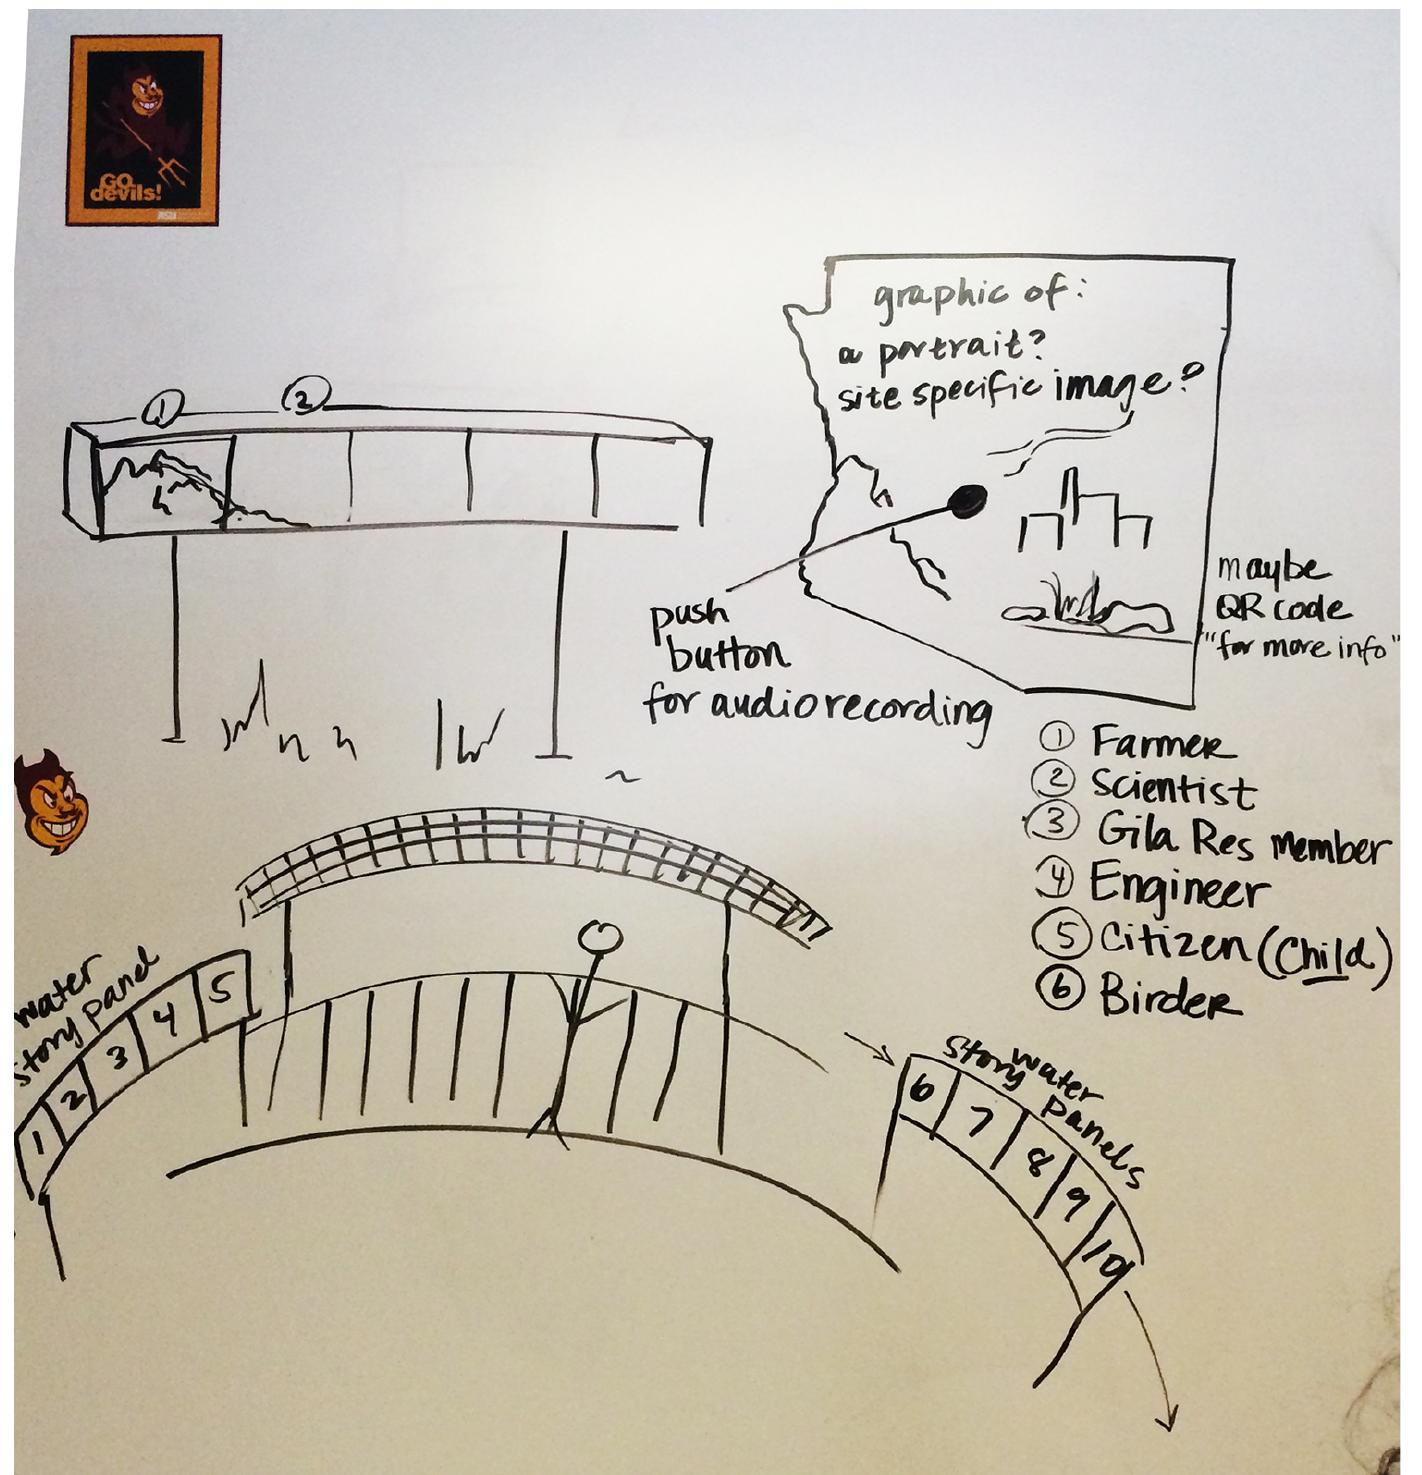 GO
devils!
ASU
graphic of:
a portrait?
site specific image?
1
2
push
button
for audio recording
maybe
QR code
"for more info"
1 Farmer
2 Scientist
3 Gila Res member
4 Engineer
5 Citizen (Child)
6 Birder
water
story panel
1
2
3
4
5
story water
panels
6
7
8
9
10